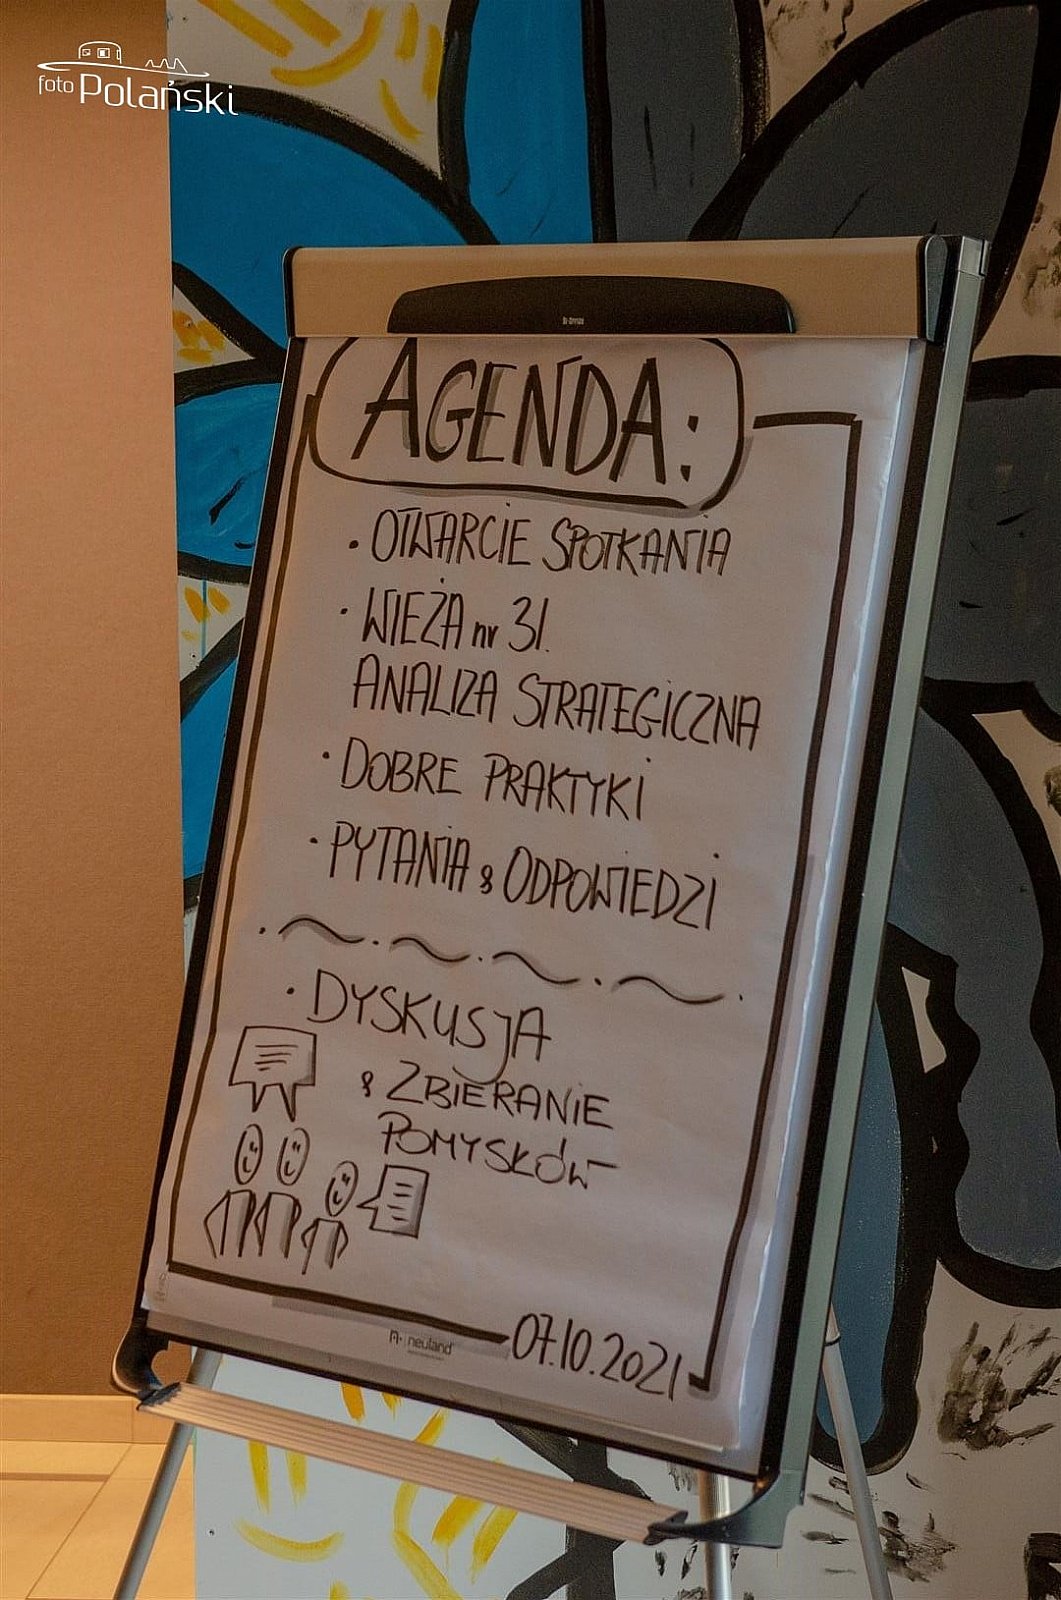 foto Polański
AGENDA:
• OTWARCIE SPOTKANIA
• WIEŻA nr 31.
ANALIZA STRATEGICZNA
• DOBRE PRAKTYKI
• PYTANIA & ODPOWIEDZI
• DYSKUSJA
& ZBIERANIE
POMYSŁÓW
neuland
07.10.2021